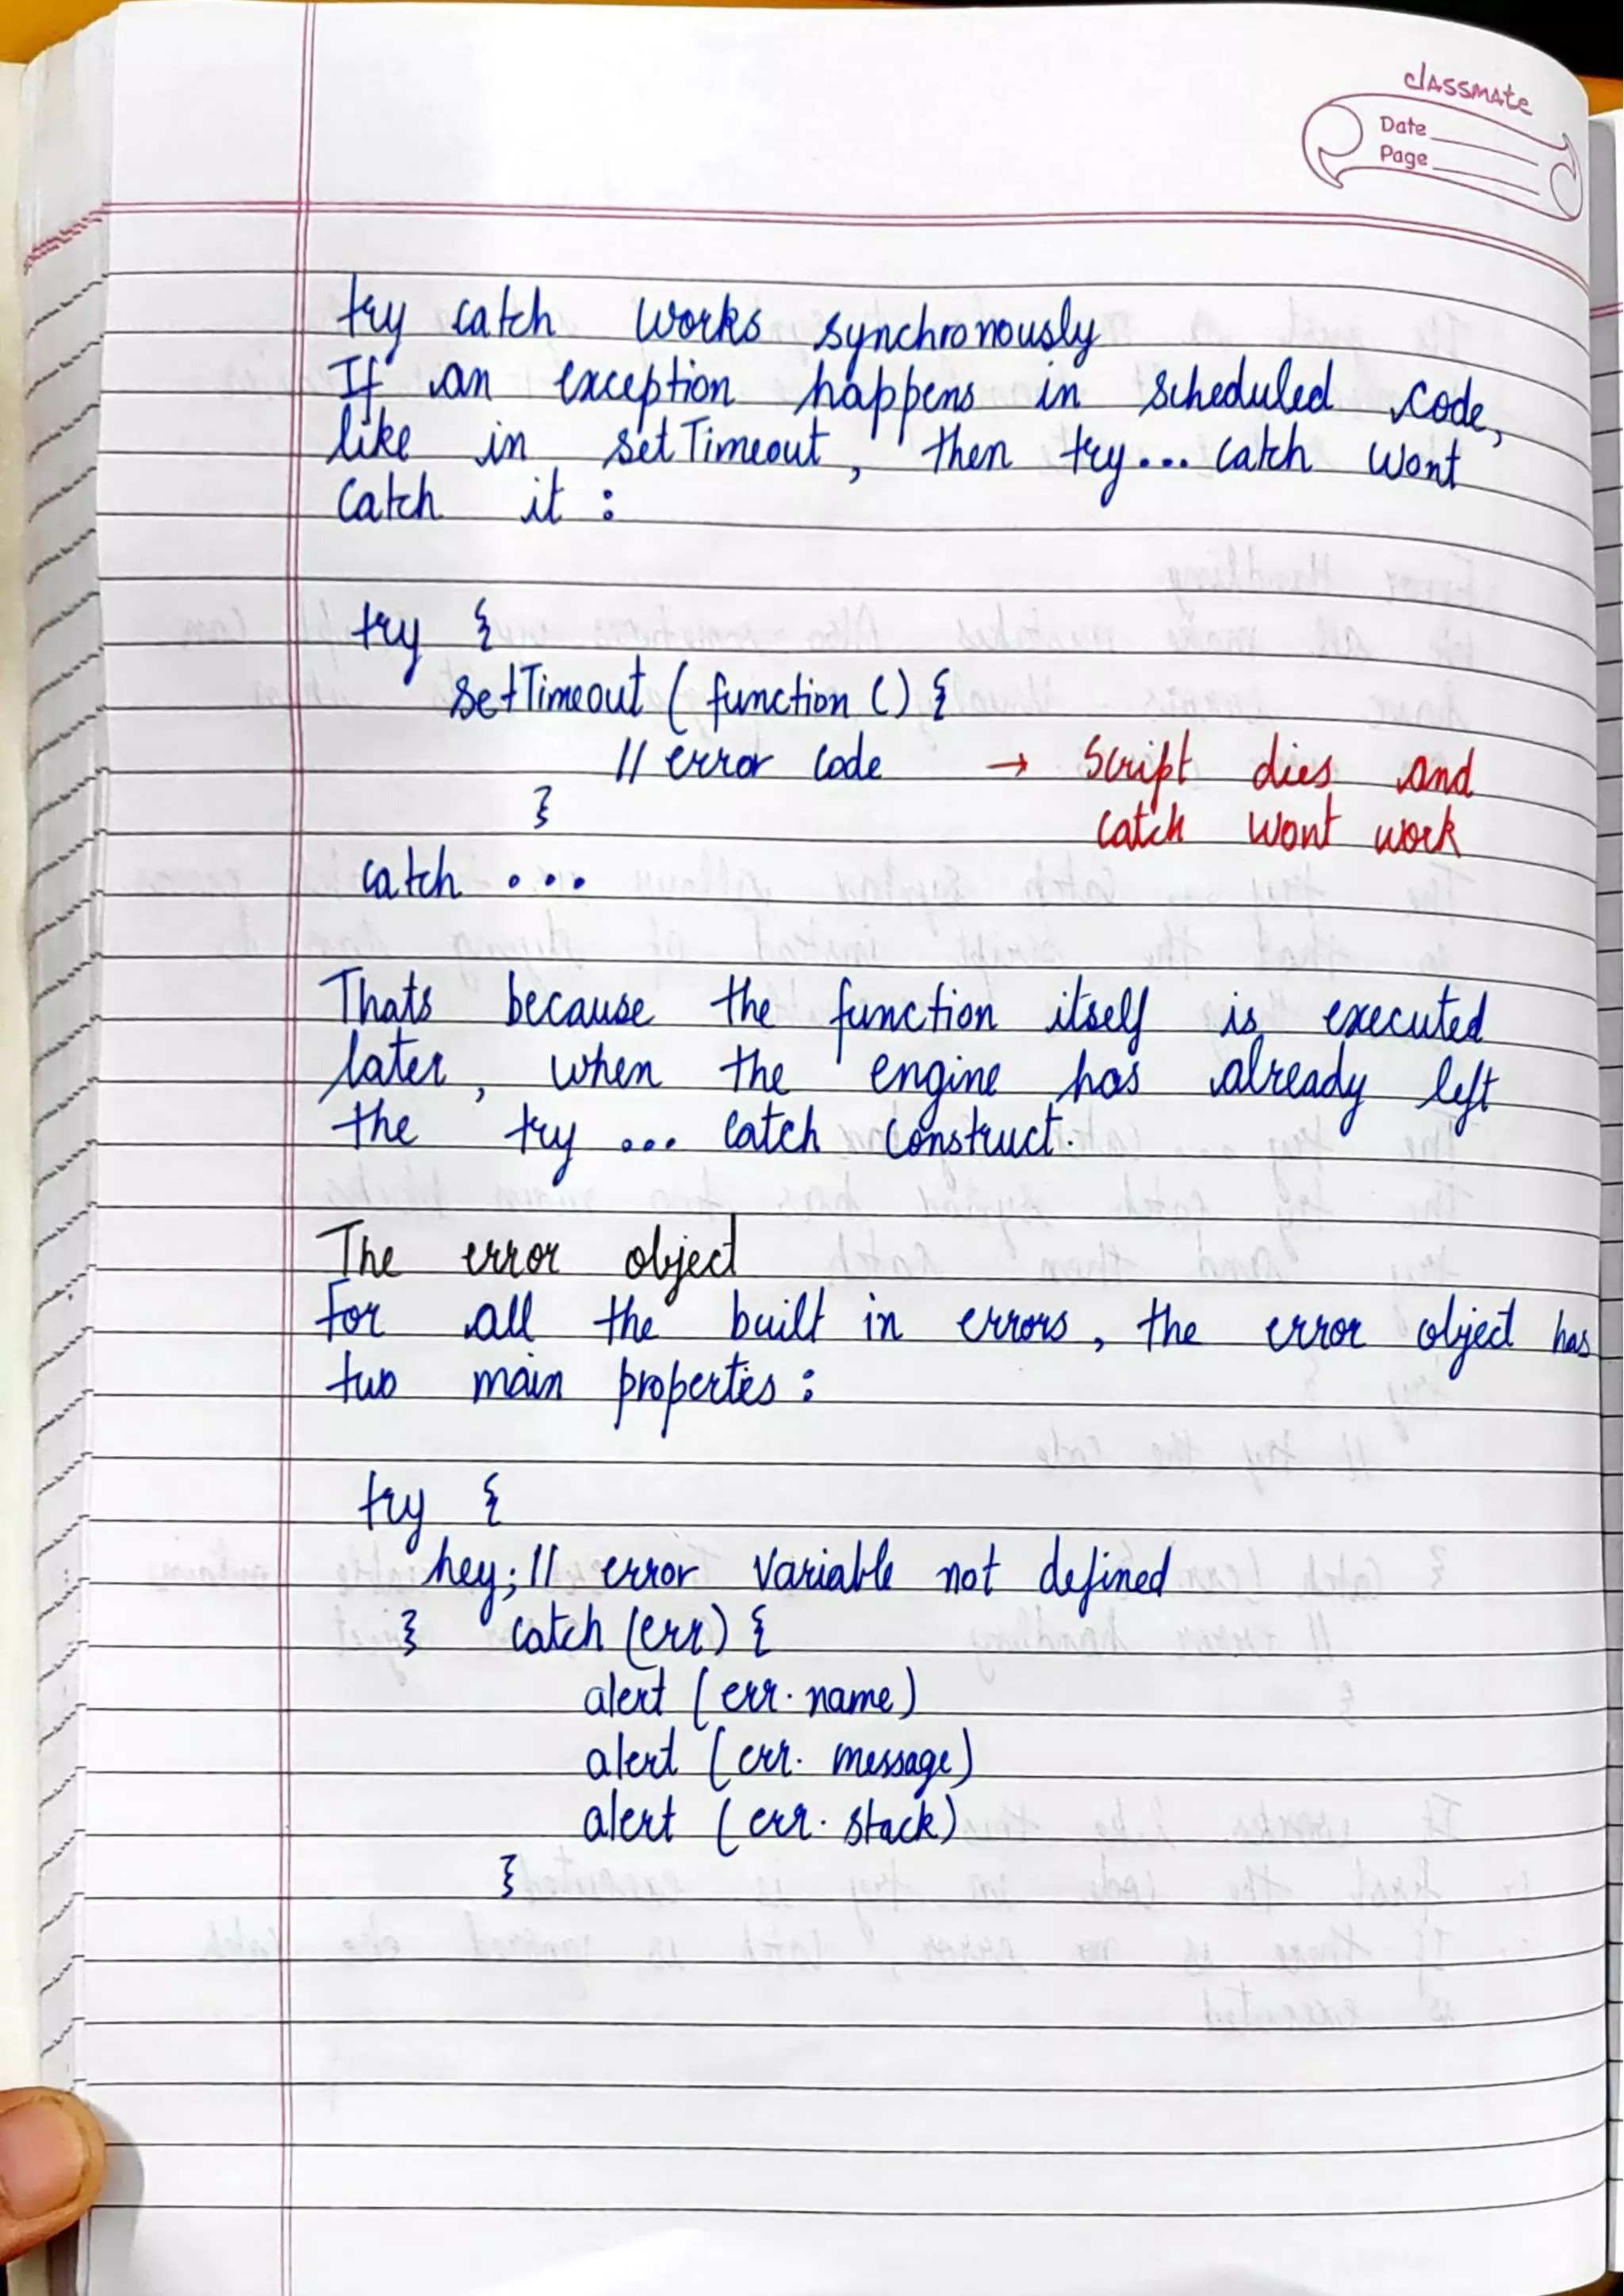 classmate
Date
Page
try catch works synchronously
If an exception happens in scheduled code,
like in setTimeout, then try... catch wont
catch it :
try {
setTimeout ( function () {
// error code → Script dies and
} catch wont work
catch ...
Thats because the function itself is executed
later, when the engine has already left
the try ... catch construct.
The error object
For all the built in errors, the error object has
two main properties :
try {
hey; // error variable not defined
} catch (err) {
alert (err. name)
alert (err. message)
alert (err. stack)
}